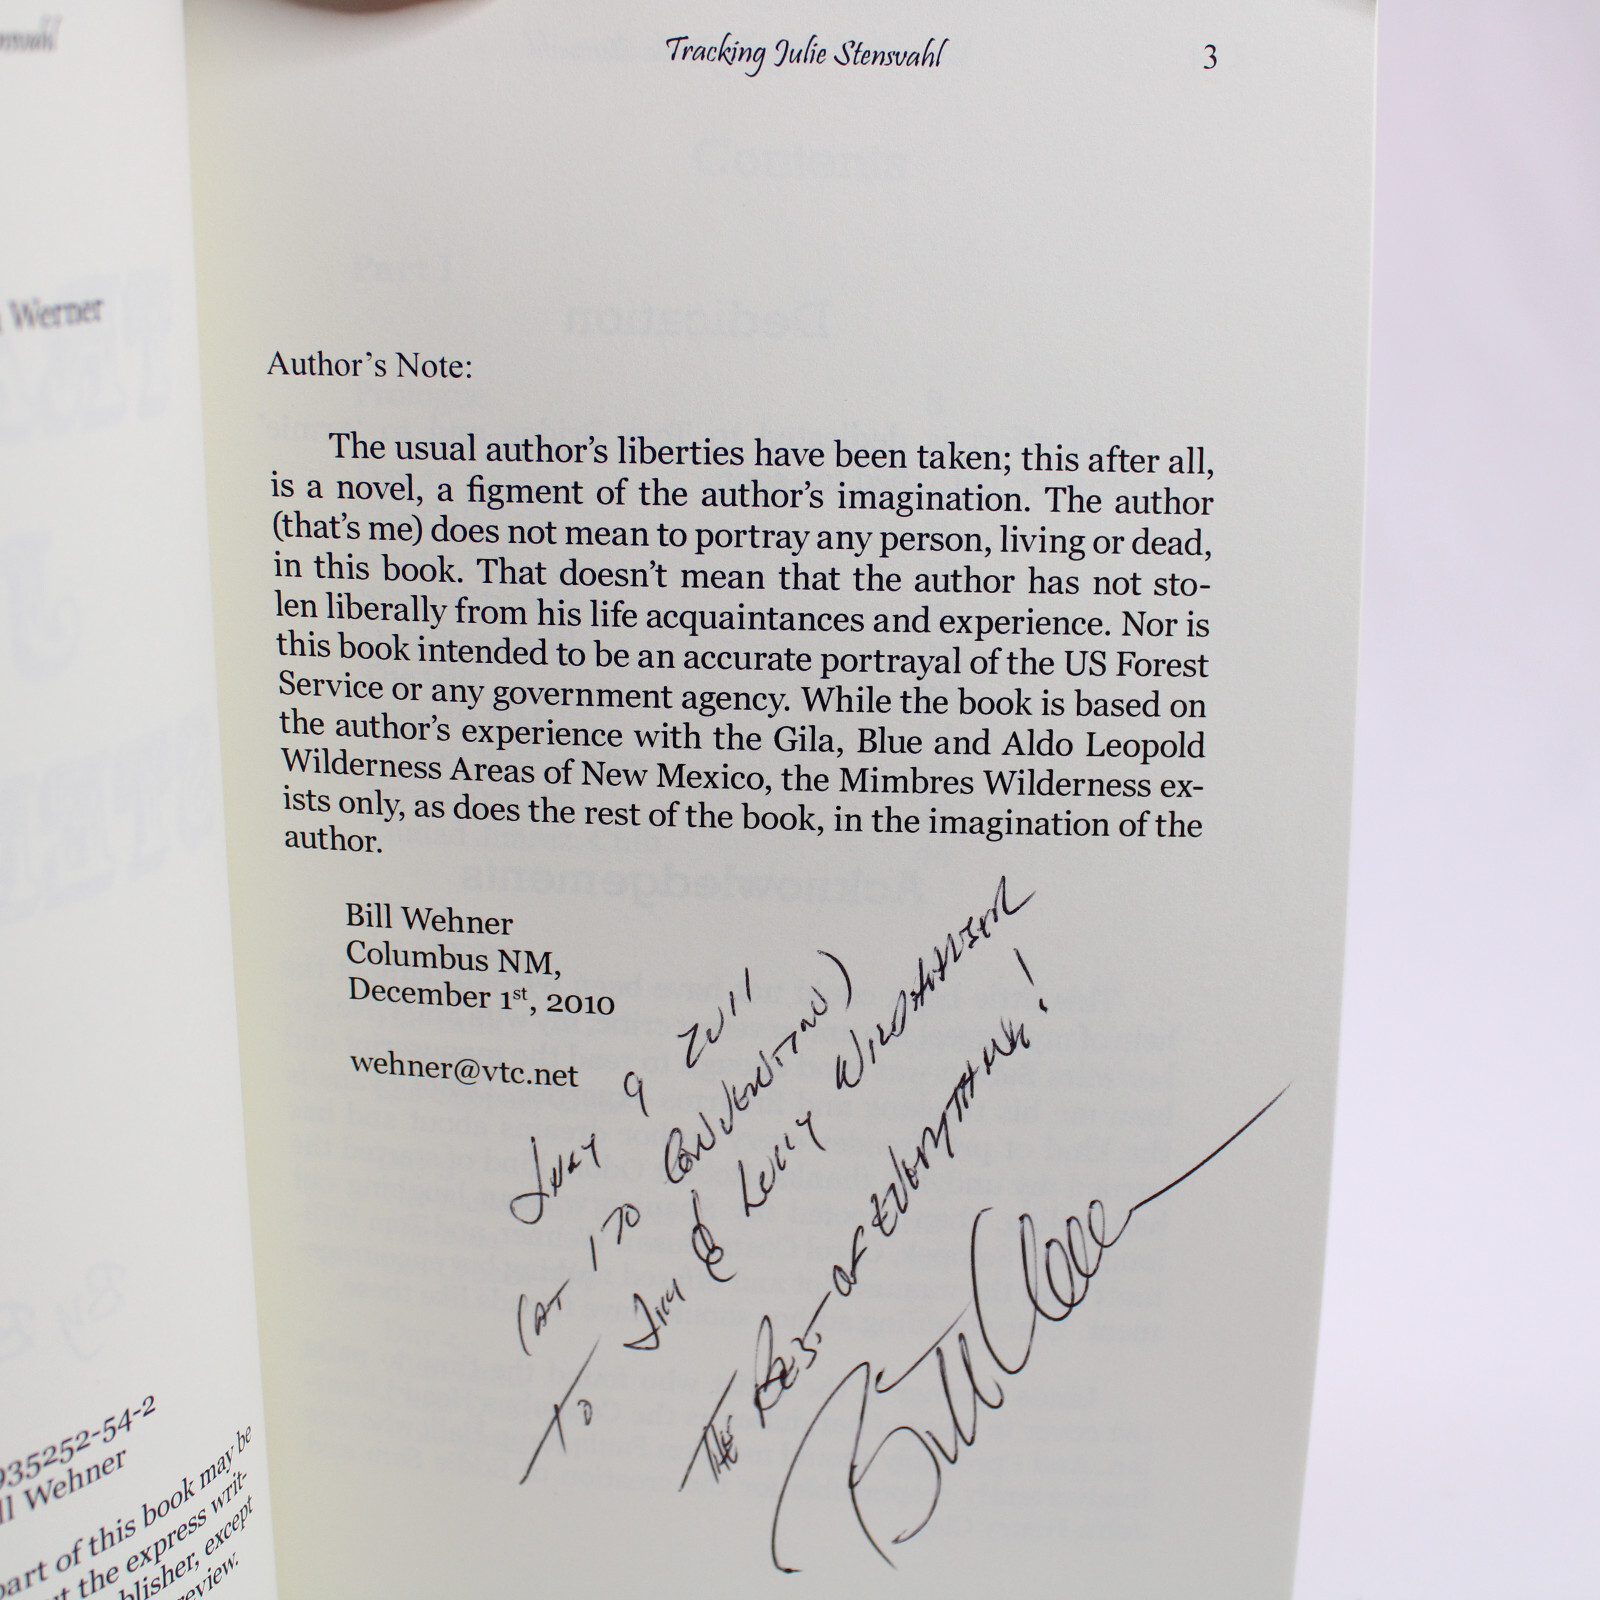 Werner
935252-54-2
ll Wehner
part of this book may be
t the express writ-
blisher, except
review.
Tracking Julie Stensvahl 3
Author's Note:
The usual author's liberties have been taken; this after all,
is a novel, a figment of the author's imagination. The author
(that's me) does not mean to portray any person, living or dead,
in this book. That doesn't mean that the author has not sto-
len liberally from his life acquaintances and experience. Nor is
this book intended to be an accurate portrayal of the US Forest
Service or any government agency. While the book is based on
the author's experience with the Gila, Blue and Aldo Leopold
Wilderness Areas of New Mexico, the Mimbres Wilderness ex-
ists only, as does the rest of the book, in the imagination of the
author.
Bill Wehner
Columbus NM,
December 1st, 2010
wehner@vtc.net
July 9 2011
(at 170 Convention)
To Jim & Lucy
The Best of Everything!
Bill